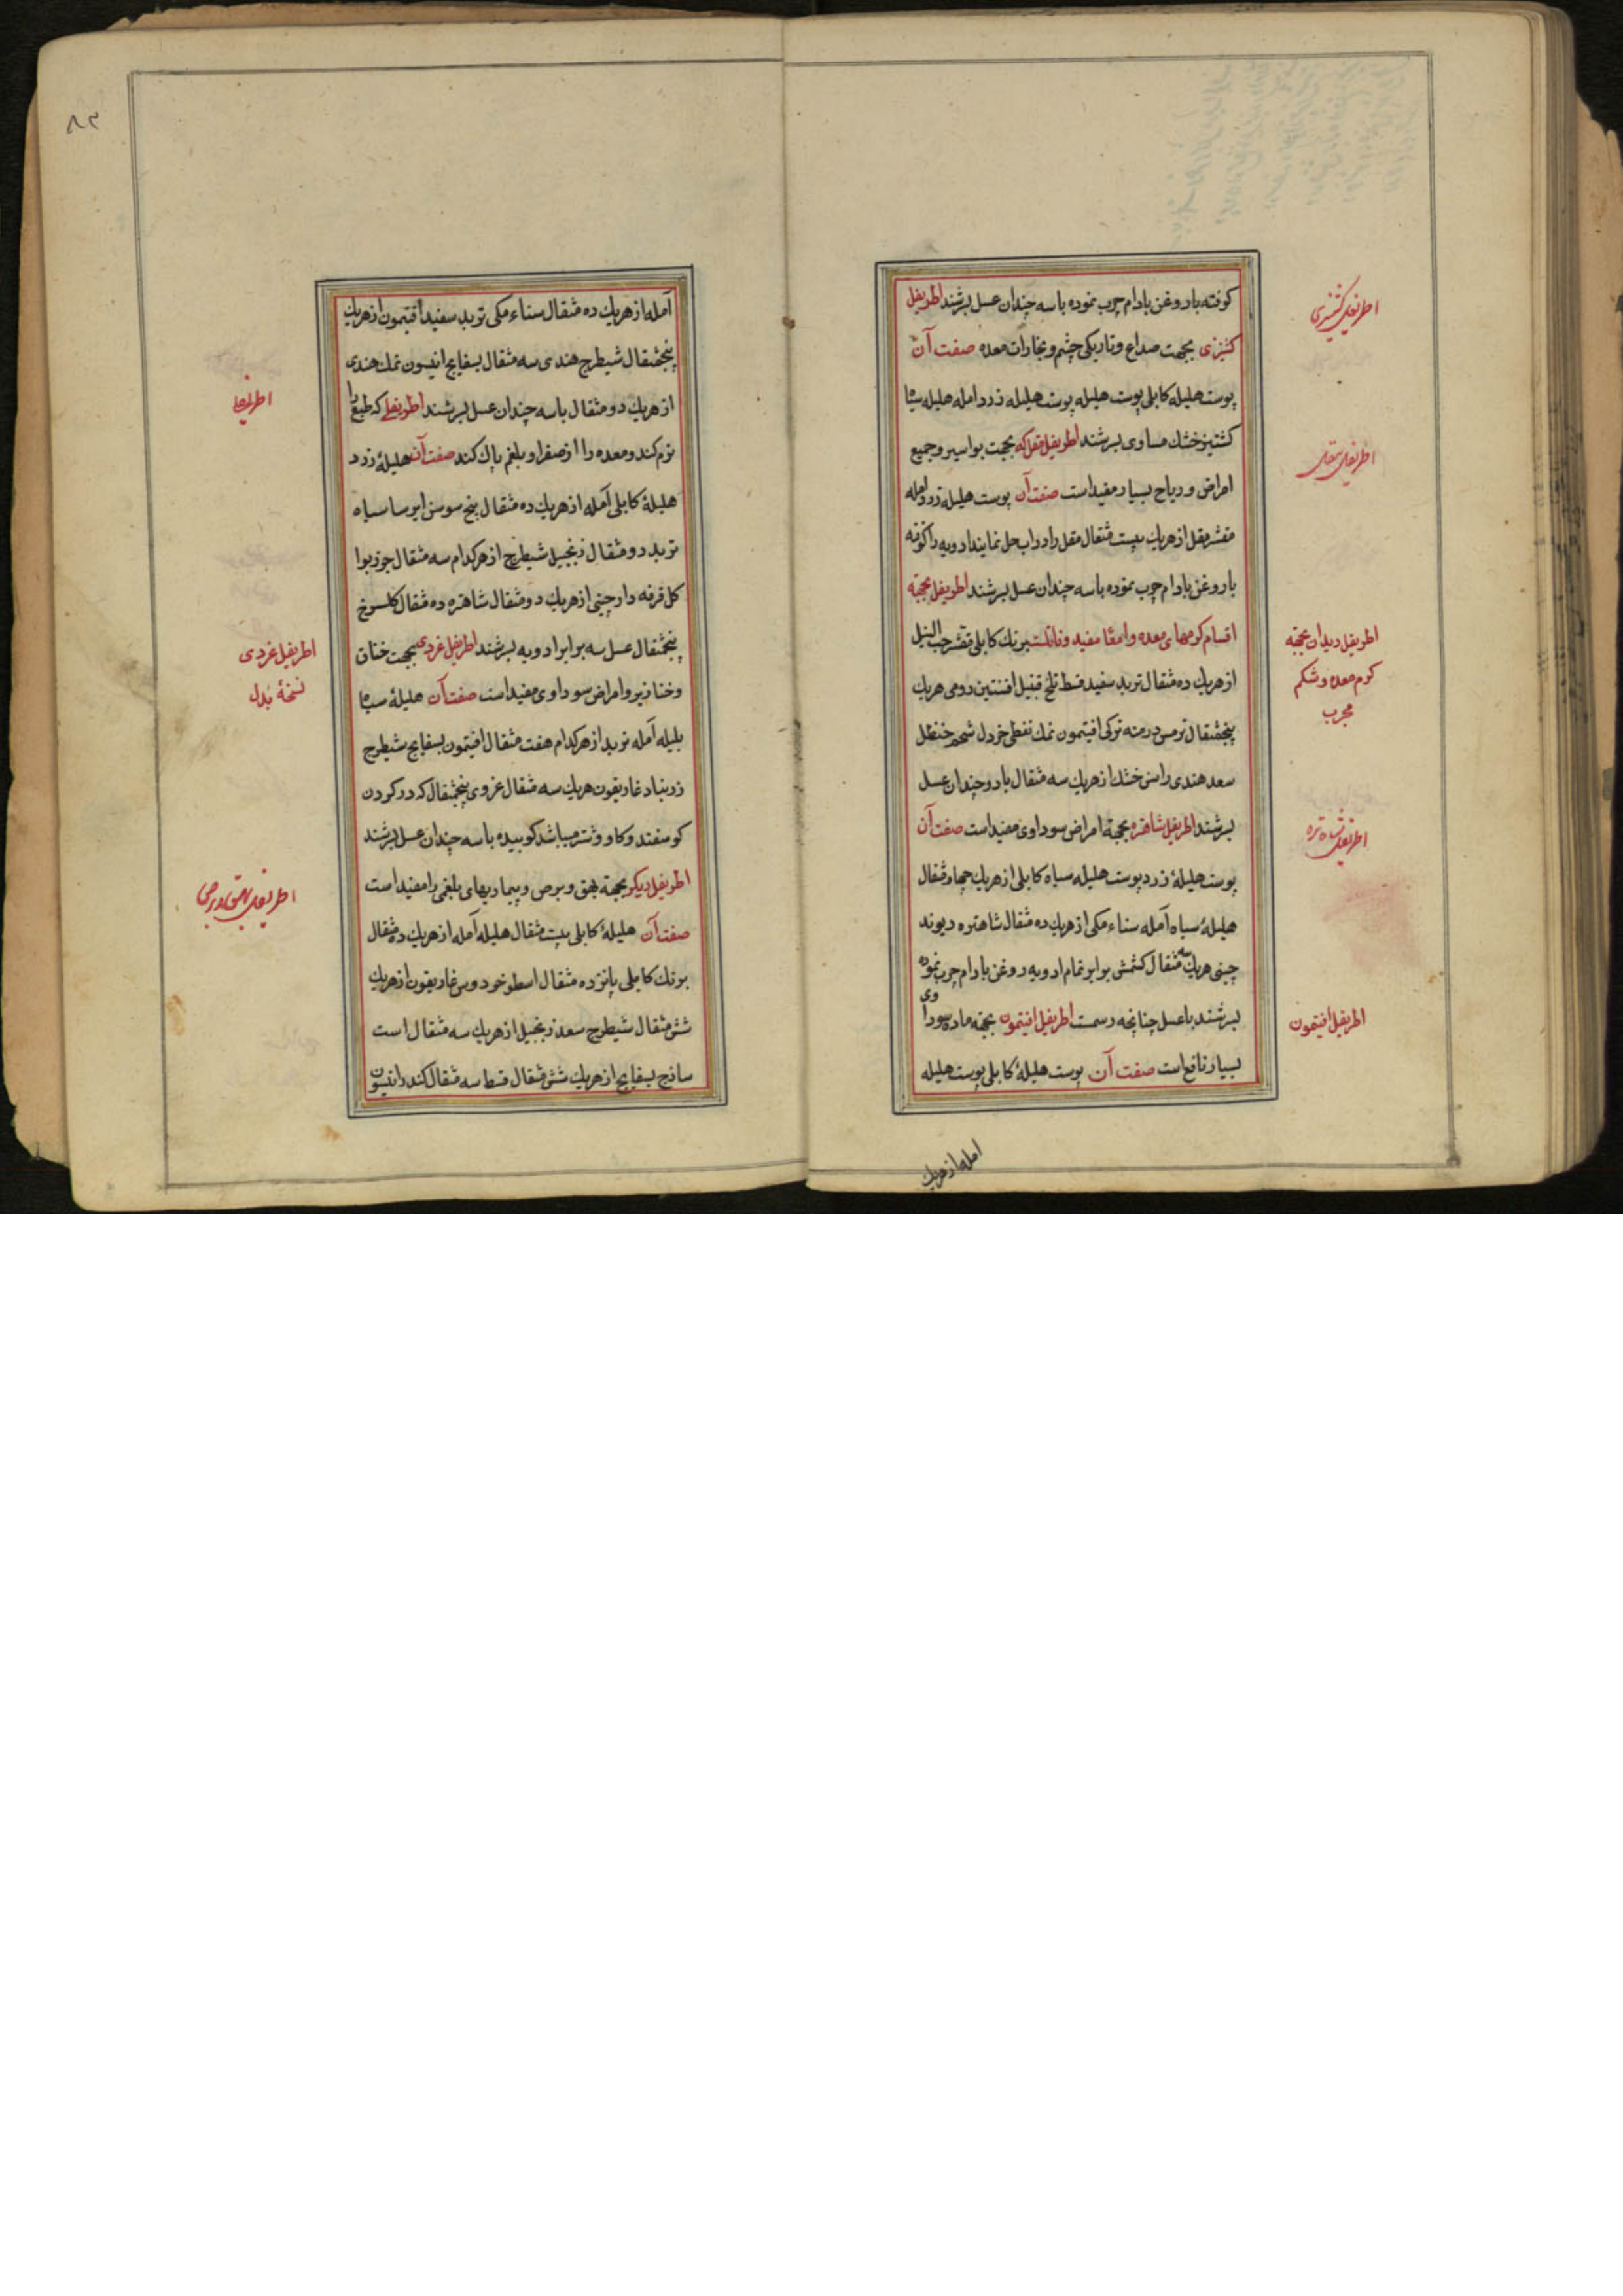 اطریفل کشنیزی
کوفته بار وغن بادام چرب نموده باسه چندان عسل بسرشند اطریفل
کشنیزی بجهت صداع وتاریکی چشم وبخارات معده صفت آن
پوست هلیله کابلی پوست هلیله پوست هلیله زرد امله هلیله سیاه
کشنیز خشك مساوی بسرشند اطریفل مقل که بجهت بواسیر وجمیع
امراض وریاح بسیار مفید است صفت آن پوست هلیله زرد امله
مقشر مقل از هریك بیست مثقال مقل را در اب حل نمایند ادویه را کوفته
بار وغن بادام چرب نموده باسه چندان عسل بسرشند اطریفل بجهة
اقسام کرمهای معده وامعا مفید ونافعست برنك کابلی مقشر حب النیل
از هریك ده مثقال تربد سفید قسط تلخ قنبیل افسنتین رومی هریك
پنجمثقال ترمس درمنه ترکی افتیمون نمك نفطی خردل شحم حنظل
سعد هندی راسن خشك از هریك سه مثقال بادوچندان عسل
بسرشند اطریفل شاهتره بجهة امراض سوداوی مفید است صفت آن
پوست هلیلهٔ زرد پوست هلیله سیاه کابلی از هریك چهار مثقال
هلیلهٔ سیاه آمله سناء مکی از هریك ده مثقال شاهتره ریوند
چینی هریك سه مثقال کشمش برابر تمام ادویه روغن بادام چرب نموده
بسرشند باعسل چنانچه رسمت اطریفل افتیمون بجهة ماده سوداوی
بسیار نافع است صفت آن پوست هلیلهٔ کابلی پوست هلیله
امله از هریك
اطریفل مقل
اطریفل دیدان بجهة
کرم معده وشکم
مجرب
اطریفل شاه تره
اطریفل افتیمون
۸۳
آمله از هریك ده مثقال سناء مکی تربد سفید افتیمون از هریك
پنجمثقال شیطرج هندی سه مثقال بسفایج انیسون نمك هندی
از هریك دو مثقال باسه چندان عسل بسرشند اطریفلی که طبع را
نرم کند ومعده را از صفرا وبلغم پاك کند صفت آن هلیلهٔ زرد
هلیلهٔ کابلی آمله از هریك ده مثقال بیخ سوسن ایرسا سیاه
تربد دو مثقال زنجبیل شیطرج از هرکدام سه مثقال جوزبوا
کل قرفه دارچینی از هریك دومثقال شاهتره ده مثقال کلسرخ
پنجمثقال عسل سه برابر ادویه بسرشند اطریفل غددی بجهت خناق
وخنازیر وامراض سوداوی مفید است صفت آن هلیلهٔ سیاه
بلیله آمله تربد از هرکدام هفت مثقال افتیمون بسفایج شیطرج
زرنباد غاریقون هریك سه مثقال غدوی پنجمثقال که در کردن
کوسفند وکاو وشتر میباشد کوبیده باسه چندان عسل بسرشند
اطریفل دیکر بجهة بهق وبرص وبیماریهای بلغمی را مفید است
صفت آن هلیلهٔ کابلی بیست مثقال هلیله آمله از هریك ده مثقال
برنك کابلی پانزده مثقال اسطوخودوس غاریقون از هریك
شش مثقال شیطرج سعد زنجبیل از هریك سه مثقال است
ساذج بسفایج از هریك شش مثقال قسط سه مثقال کندر انیسون
اطریفل غددی
نسخهٔ بدل